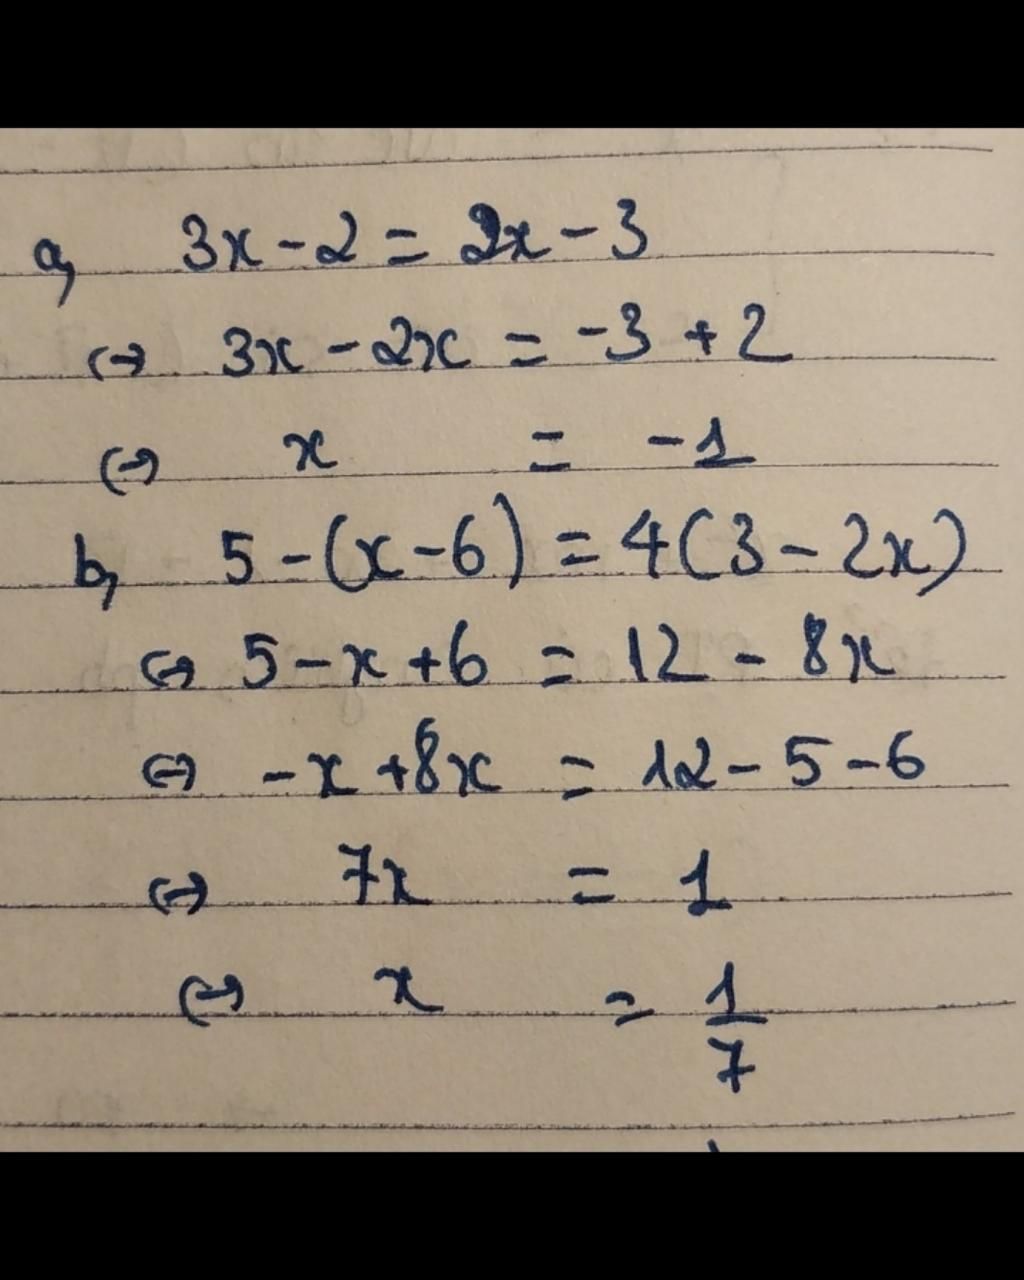 a, 3x - 2 = 2x - 3
⇔ 3x - 2x = -3 + 2
⇔ x = -1
b, 5 - (x - 6) = 4(3 - 2x)
⇔ 5 - x + 6 = 12 - 8x
⇔ -x + 8x = 12 - 5 - 6
⇔ 7x = 1
⇔ x = 1/7